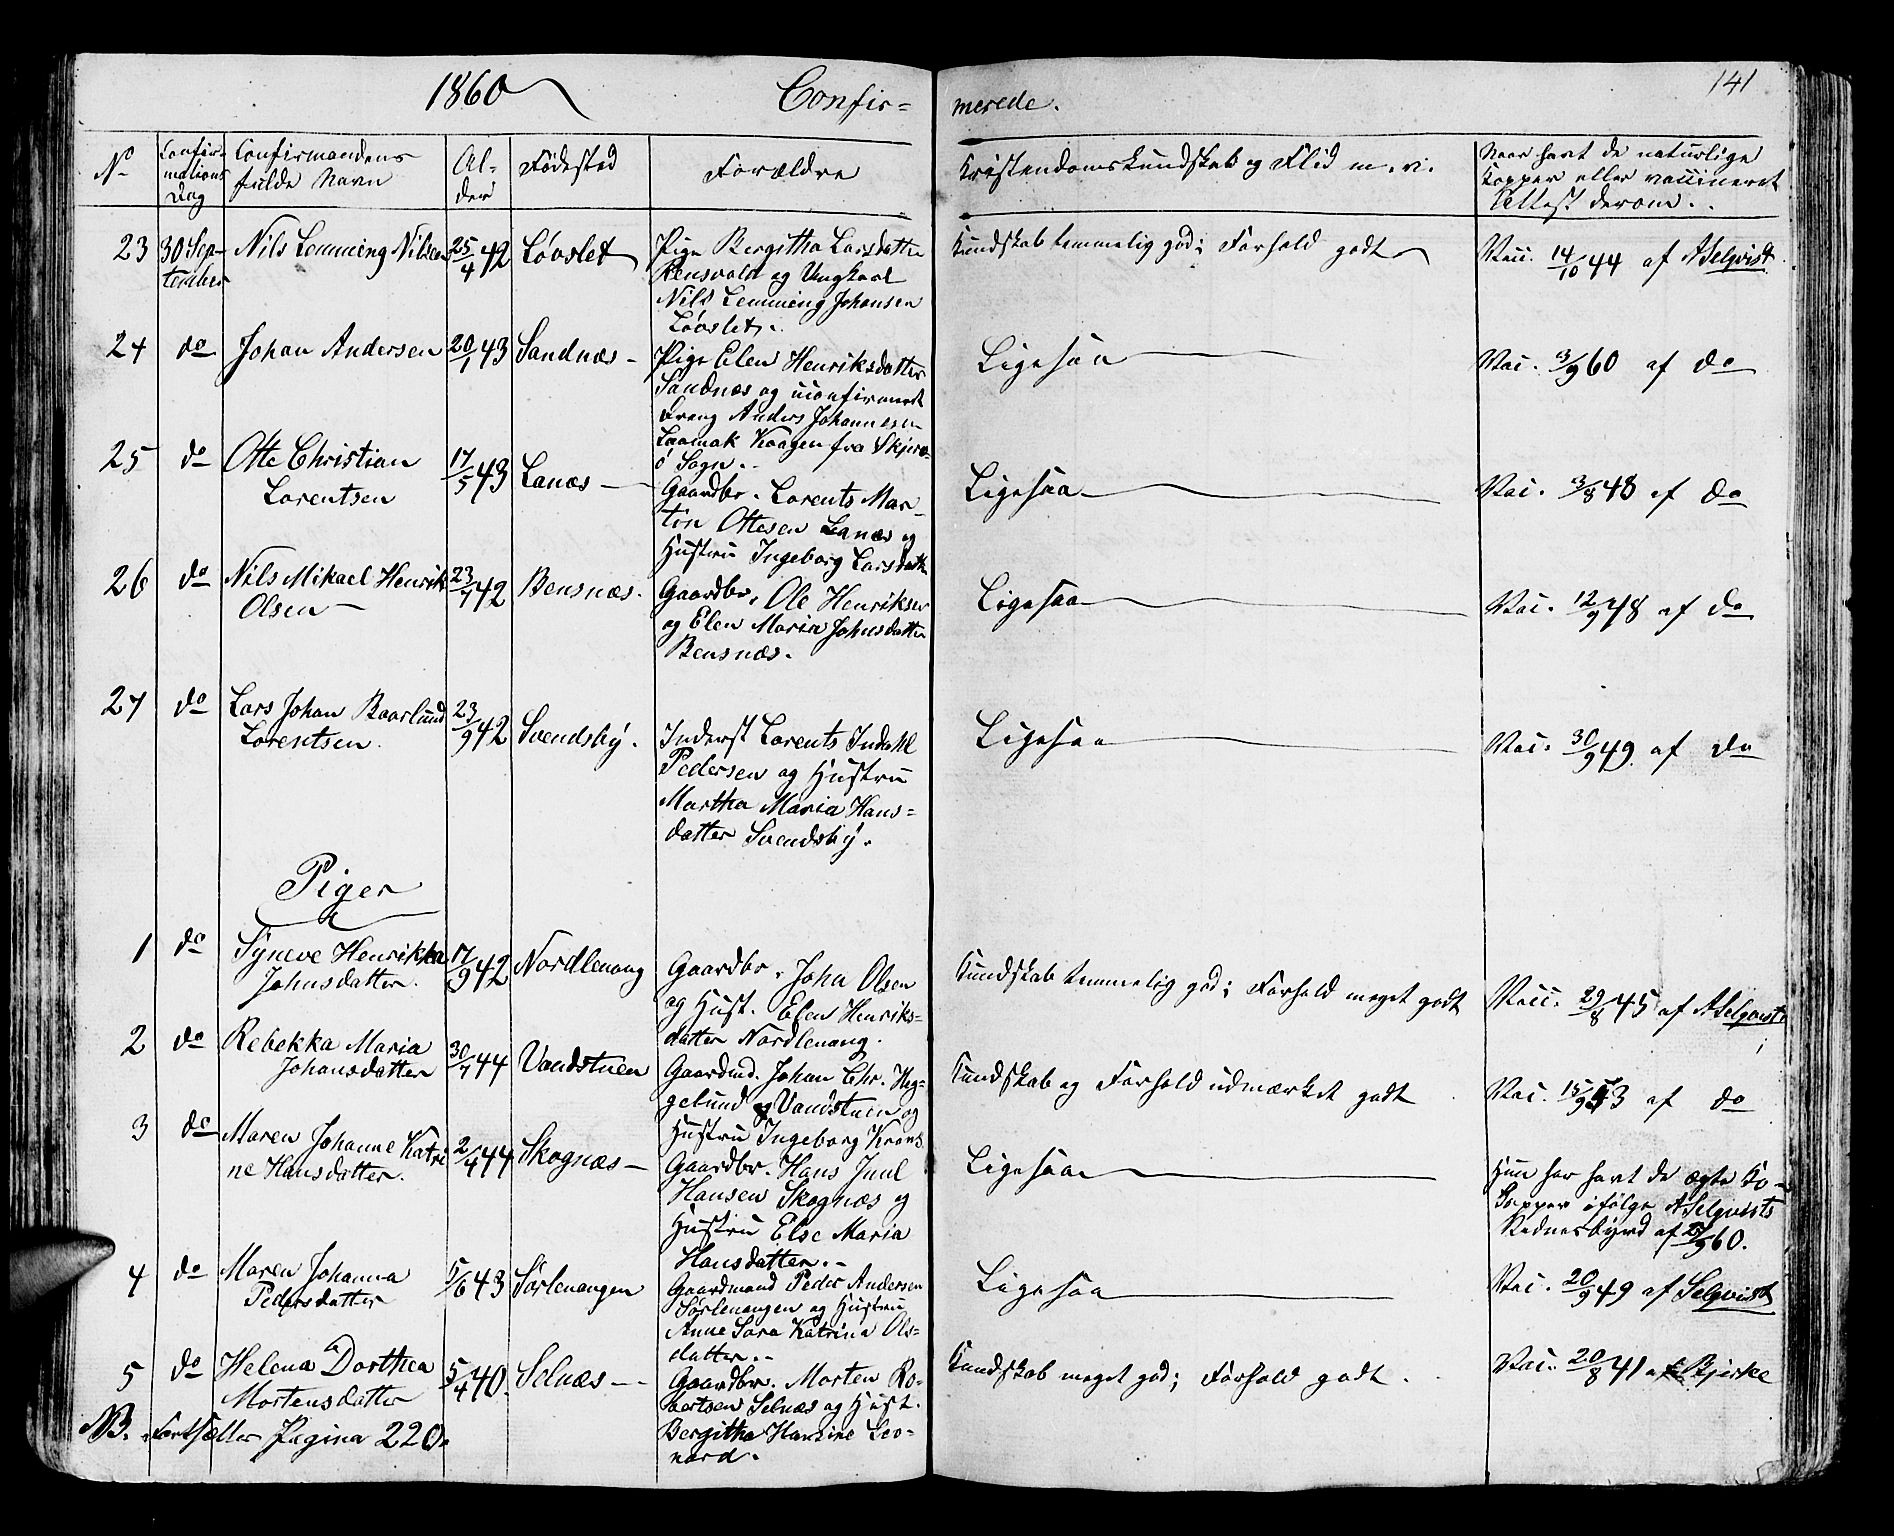 1860 Confir= merede. 141
No Confirmations Dag Confirmandens fulde Navn Alder Fødested Forældre Kristendomskundskab og Flid m. v. Naar havt de naturlige Kopper eller vaccineret Attest derom.
23 30 September Nils Lemming Nilsen 25/4 42 Løvslet Pige Bergitha Larsdatter
Rensvold og Ungkarl
Nils Lemming Johansen
Løvslet. Kundskab temmelig god; Forhold godt Vacc. 14/10 44 af A Selqvist.
24 do Johan Andersen 20/1 43 Sandnæs Pige Elen Henriksdatter
Sandnæs og uconfirmeret
Dreng Anders Johannesen
Laamak Kaagen fra Skjerv-
ø Sogn. Ligesaa Vac. 3/9 60 af do
25 do Otte Christian
Lorentsen 17/5 43 Lanæs Gaardbr. Lorents Mar-
tin Ottesen Lanæs og
Hustru Ingeborg Larsdatter Ligesaa Vac. 3/8 48 af do
26 do Nils Mikael Henrik
Olsen 23/7 42 Bensnæs. Gaardbr. Ole Henriksen
og Elen Maria Johnsdatter
Bensnæs. Ligesaa Vac. 12/9 48 af do
27 do Lars Johan Baarlund
Lorentsen. 23/9 42 Svendsby. Inderst Lorents Indahl
Pedersen og Hustru
Martha Maria Hans=
datter Svendsby. Ligesaa Vac. 30/9 49. af do
Piger
1 do Syneve Henrikka
Johnsdatter. 17/9 42 Nordlenang Gaardbr. John Olsen
og Hust. Elen Henriks=
datter Nordlenang. Kundskab temmelig god; Forhold meget godt Vacc. 29/8 45 af A Selqvist
2 do Rebekka Maria
Johansdatter 30/7 44 Vandstuen Gaardmd. Johan Chr. Hæg-
gelund Vandstuen og
Hustru Ingeborg Krans Kundskab og Forhold udmærket godt Vac. 15/9 53 af do
3 do Maren Johanne Katri
ne Hansdatter. 2/4 44 Skognæs Gaardbr. Hans Juul
Hansen Skognæs og
Hustru Else Maria
Hansdatter. Ligesaa Hun har havt de ægte Ko-
pper ifølge A Selqvists
af 60.
4 do Maren Johanna
Pedersdatter 5/6 43 Sørlenangen Gaardmand Peder Andersen
Sørlenangen og Hustru
Anne Sara Katrina Ols-
datter. Ligesaa Vac. 20/9 49 af Selqvist
5 do Helena Dorthea
Mortensdatter 5/4 40. Selnæs Gaardbr. Morten Ro-
bertsen Selnæs og Hust.
Bergitha Hansine Leo-
nard. Kundskab meget god; Forhold godt. Vac. 20/8 41 af Bjerke
NB. Fortsættes Pagina 220.